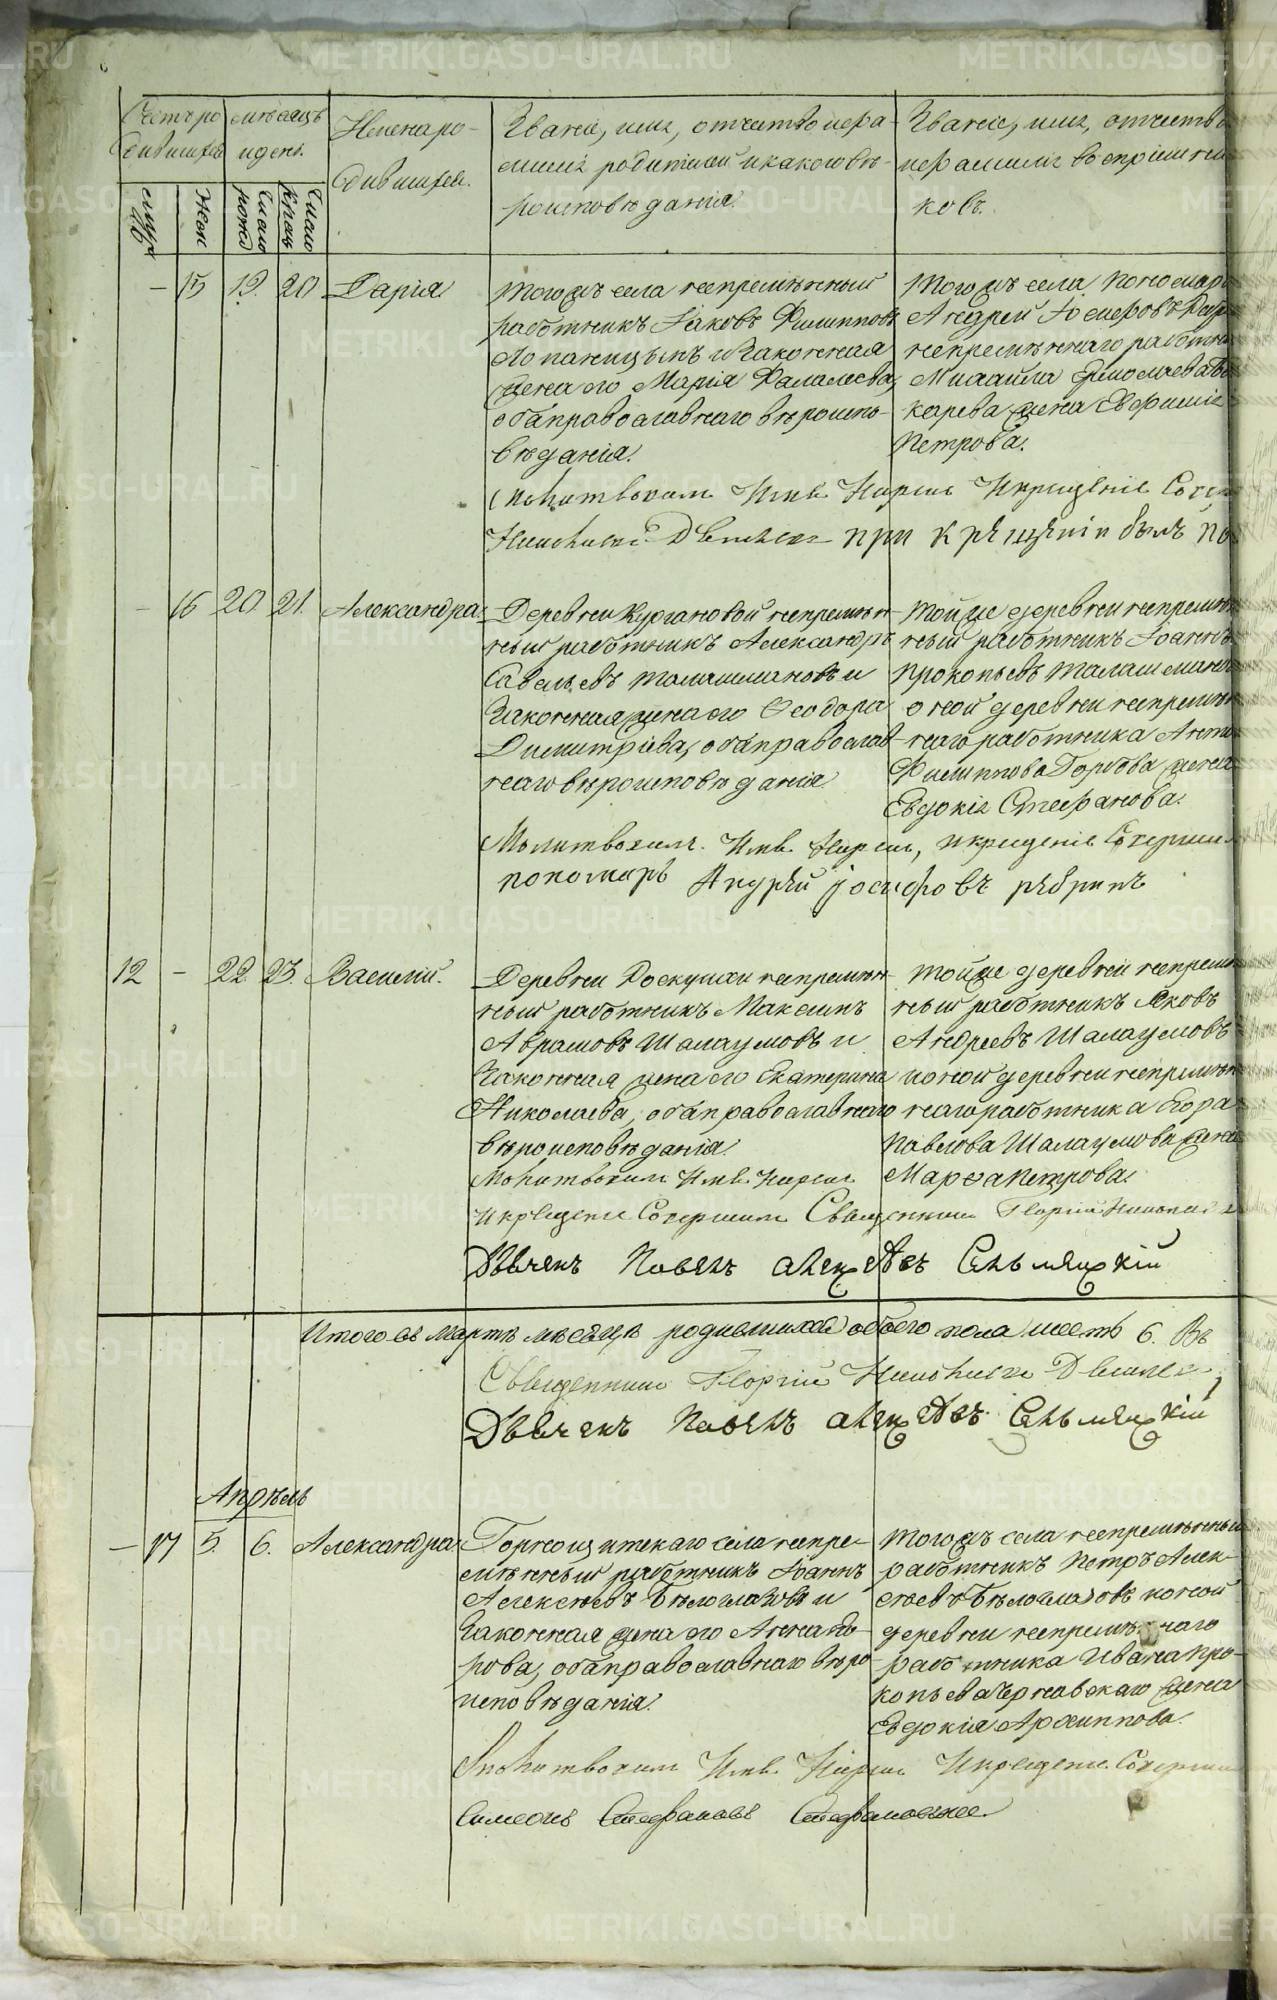 METRIKI.GASO-URAL.RU
Счетъ ро
дившихся
мѣсяцъ
и день.
Имена ро-
дившихся.
Званіе, имя, отчество и фа-
милія родителей и какого вѣ-
роисповѣданія.
Званіе, имя, отчество
и фамилія воспріемни
ковъ.
муж
Жен
Число рожд
Число крещ
— 15 19. 20 Дарія
Тогожъ села непремѣнный
работникъ Іаковъ Филипповъ
Лопаницынъ и Законная
жена его Марія Фалалеева,
оба православнаго вѣроиспо-
вѣданія.
Тогожъ села пономарь
Андрей Іосифовъ
непремѣннаго работни
Михаила Ермолаева
карева жена Евфимія
Петрова.
Молитвовалъ Имя Нарекъ И крещеніе
при крещеніи былъ по
— 16 20. 21. Александра
Деревни Кургановой непремѣн-
ный работникъ Александръ
Савельевъ Талашмановъ и
Законная жена его Ѳеодора
Димитріева, оба православ-
наго вѣроисповѣданія.
Тойже деревни непремѣн
ный работникъ Іоаннъ
Прокопьевъ Талашмано
оной деревни непремѣн
наго работника Анти
Филиппова Горбова жена
Евдокія Стефанова.
Молитвовалъ Имя Нарекъ, и крещеніе Совершилъ
пономарь Андрей Іосифовъ рѣбринъ
12 — 22. 23. Василій.
Деревни Раскухи непремѣн-
ный работникъ Максимъ
Аврамовъ Шалаумовъ и
Законная жена его Екатерина
Николаева, оба православнаго
вѣроисповѣданія.
Тойже деревни непремѣн
ный работникъ Яковъ
Андреевъ Шалаумовъ
и оной деревни непремѣн
наго работника
Павлова Шалаумова жена
Марѳа Петрова.
Молитвовалъ Имя нарекъ
И крещеніе Совершилъ Священникъ Георгій
Дьячекъ Павелъ алексѣевъ
Итого въ Мартѣ мѣсяцѣ родившихся обоего пола шесть 6. Въ
Священникъ Георгій
Дьячекъ Павелъ алексѣевъ
Апрѣль
— 17 5. 6. Александра
Горнощитскаго села непре-
мѣнный работникъ Іоаннъ
Алексѣевъ Бѣлоглазовъ и
Законная жена его Анна
рова, оба православнаго вѣро
исповѣданія.
Тогожъ села непремѣнный
работникъ Петръ Алек-
сѣевъ Бѣлоглазовъ и оной
деревни непремѣннаго
работника Ивана Про-
копьева Чернавскаго жена
Евдокія Архиппова.
Молитвовалъ Имя Нарекъ И крещеніе Совершилъ
Симеонъ Стефановъ